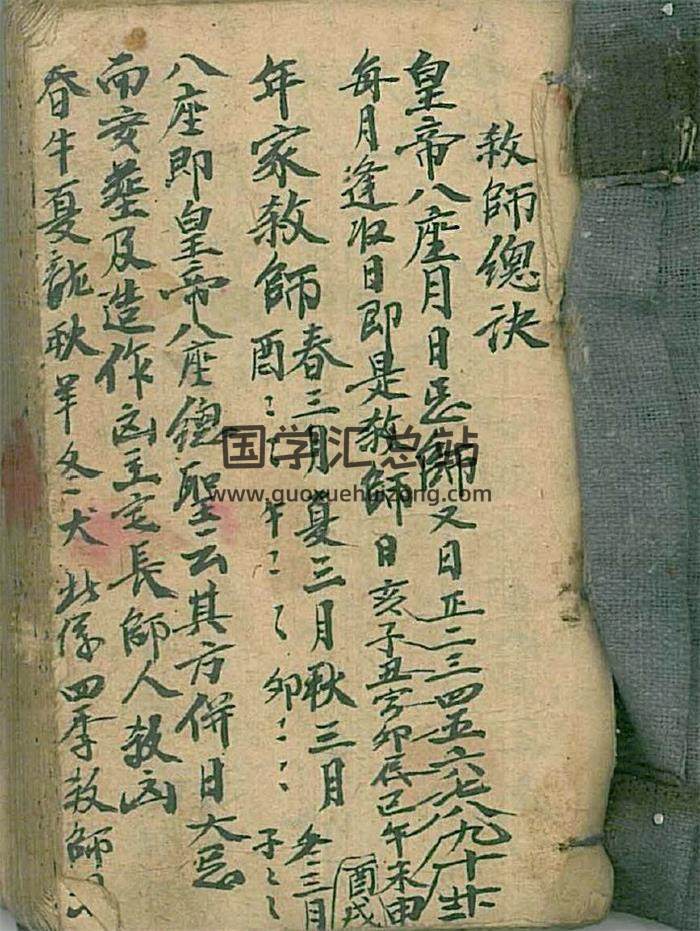 殺師總訣
皇帝八座月日忌師又日正二三四五六七八九十
每月逢收日即是殺師日亥子丑寅卯辰巳午未申酉戌
年家殺師春三月夏三月秋三月冬三月
酉午卯子
八座即皇帝八座總聖云其方併日大忌
而安塟及造作凶主定長師人殺凶
春牛夏龍秋羊冬犬此係四季殺師
国学汇总站
www.guoxuehuizong.com